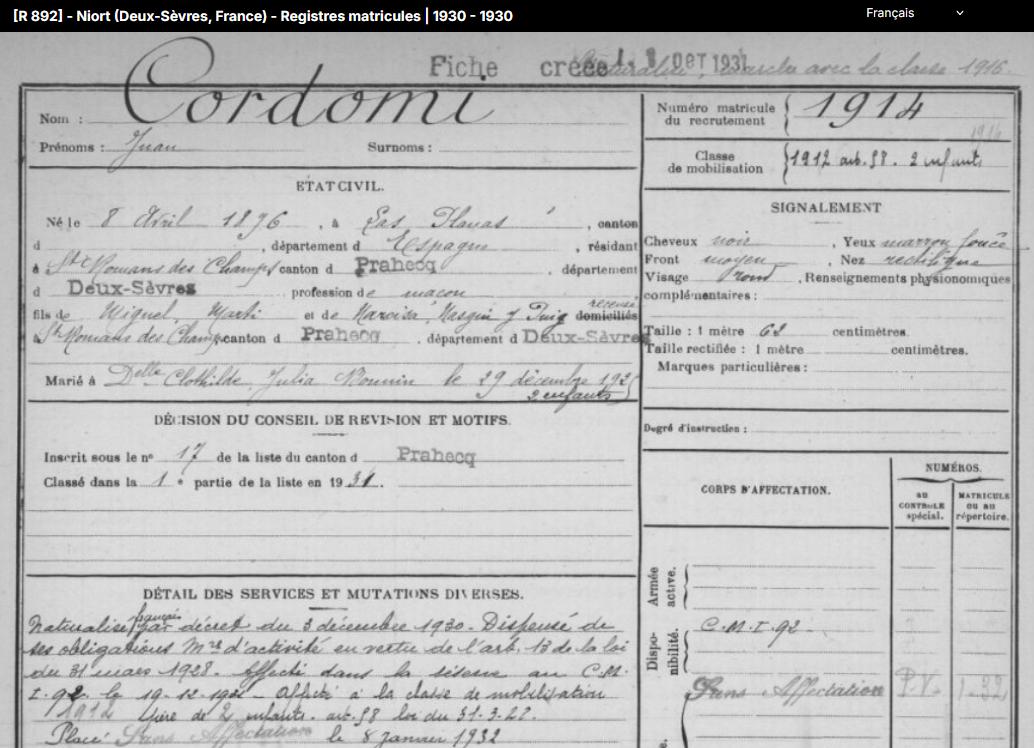 [R 892] - Niort (Deux-Sèvres, France) - Registres matricules | 1930 - 1930
Français
Fiche créée 1 OCT 1931
Naturalisé, marche avec la classe 1916.
Nom : Cordomi
Prénoms : Juan Surnoms :
Numéro matricule du recrutement 1914
1916
Classe de mobilisation 1912 art. 58. 2 enfants
ÉTAT CIVIL.
Né le 8 Avril 1896, à Las Planas, canton
d , département d Espagne, résidant
à St Romans des Champs canton d Prahecq, département
d Deux-Sèvres profession de maçon
fils de Miguel, Marti et de Narcisa, y Puig domiciliés
recensé
à St Romans des Champs canton d Prahecq, département d Deux-Sèvres
Marié à Delle Clothilde, Julia le 29 décembre
2 enfants
SIGNALEMENT
Cheveux noir, Yeux marron foncé
Front moyen, Nez rectiligne
Visage rond, Renseignements physionomiques
complémentaires :
Taille : 1 mètre 62 centimètres.
Taille rectifiée : 1 mètre centimètres.
Marques particulières :
Degré d'instruction :
DÉCISION DU CONSEIL DE REVISION ET MOTIFS.
Inscrit sous le n° 17 de la liste du canton d Prahecq
Classé dans la 1e partie de la liste en 1931.
CORPS D'AFFECTATION.
NUMÉROS.
AU CONTRÔLE spécial.
MATRICULE OU AU répertoire.
Armée active.
Disponibilité.
C.M.I. 92.
Sans Affectation P.V. 1.32
DÉTAIL DES SERVICES ET MUTATIONS DIVERSES.
Naturalisé français par décret du 3 décembre 1930. Dispensé de
ses obligations Mres d'activité en vertu de l'art. 13 de la loi
du 31 mars 1928. Affecté dans la réserve au C.M.
I. 92 le 19-12-. Affecté à la classe de mobilisation
1912 Père de 2 enfants. art. 58 loi du 31.3.28.
Placé Sans Affectation le 8 Janvier 1932